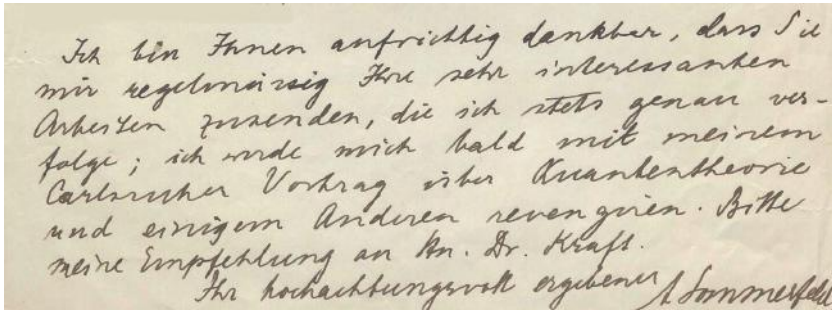 Ich bin Ihnen aufrichtig dankbar, dass Sie
mir regelmässig Ihre sehr interessanten
Arbeiten zusenden, die ich stets genau ver-
folge; ich werde mich bald mit meinem
Carlsruher Vortrag über Quantentheorie
und einigem Anderen revengieren. Bitte
meine Empfehlung an Hn. Dr. Kraft.
Ihr hochachtungsvoll ergebener A Sommerfeld